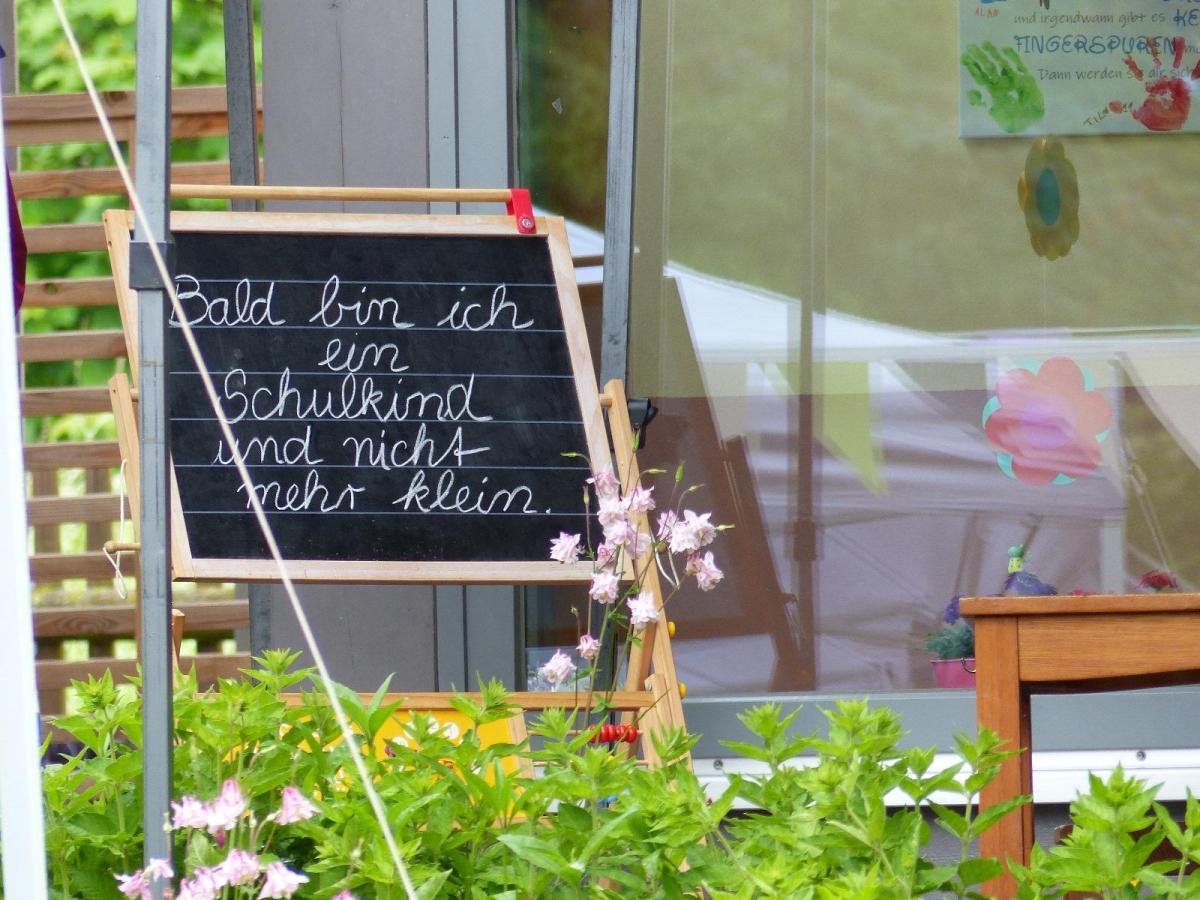 Bald bin ich
ein
Schulkind
und nicht
mehr klein.
ALAN
und irgendwann gibt es KE
FINGERSPUREN
Dann werden sie dir sich